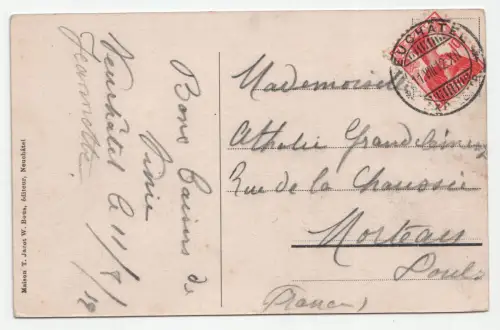 Bons baisers de
Neuchâtel le 11/8/12
Jeannette
Mademoiselle
Athalie Grandclément
Rue de la Chaussée
Morteau
Doubs
(France)
NEUCHÂTEL
Maison T. Jacot W. Bous, éditeur, Neuchâtel